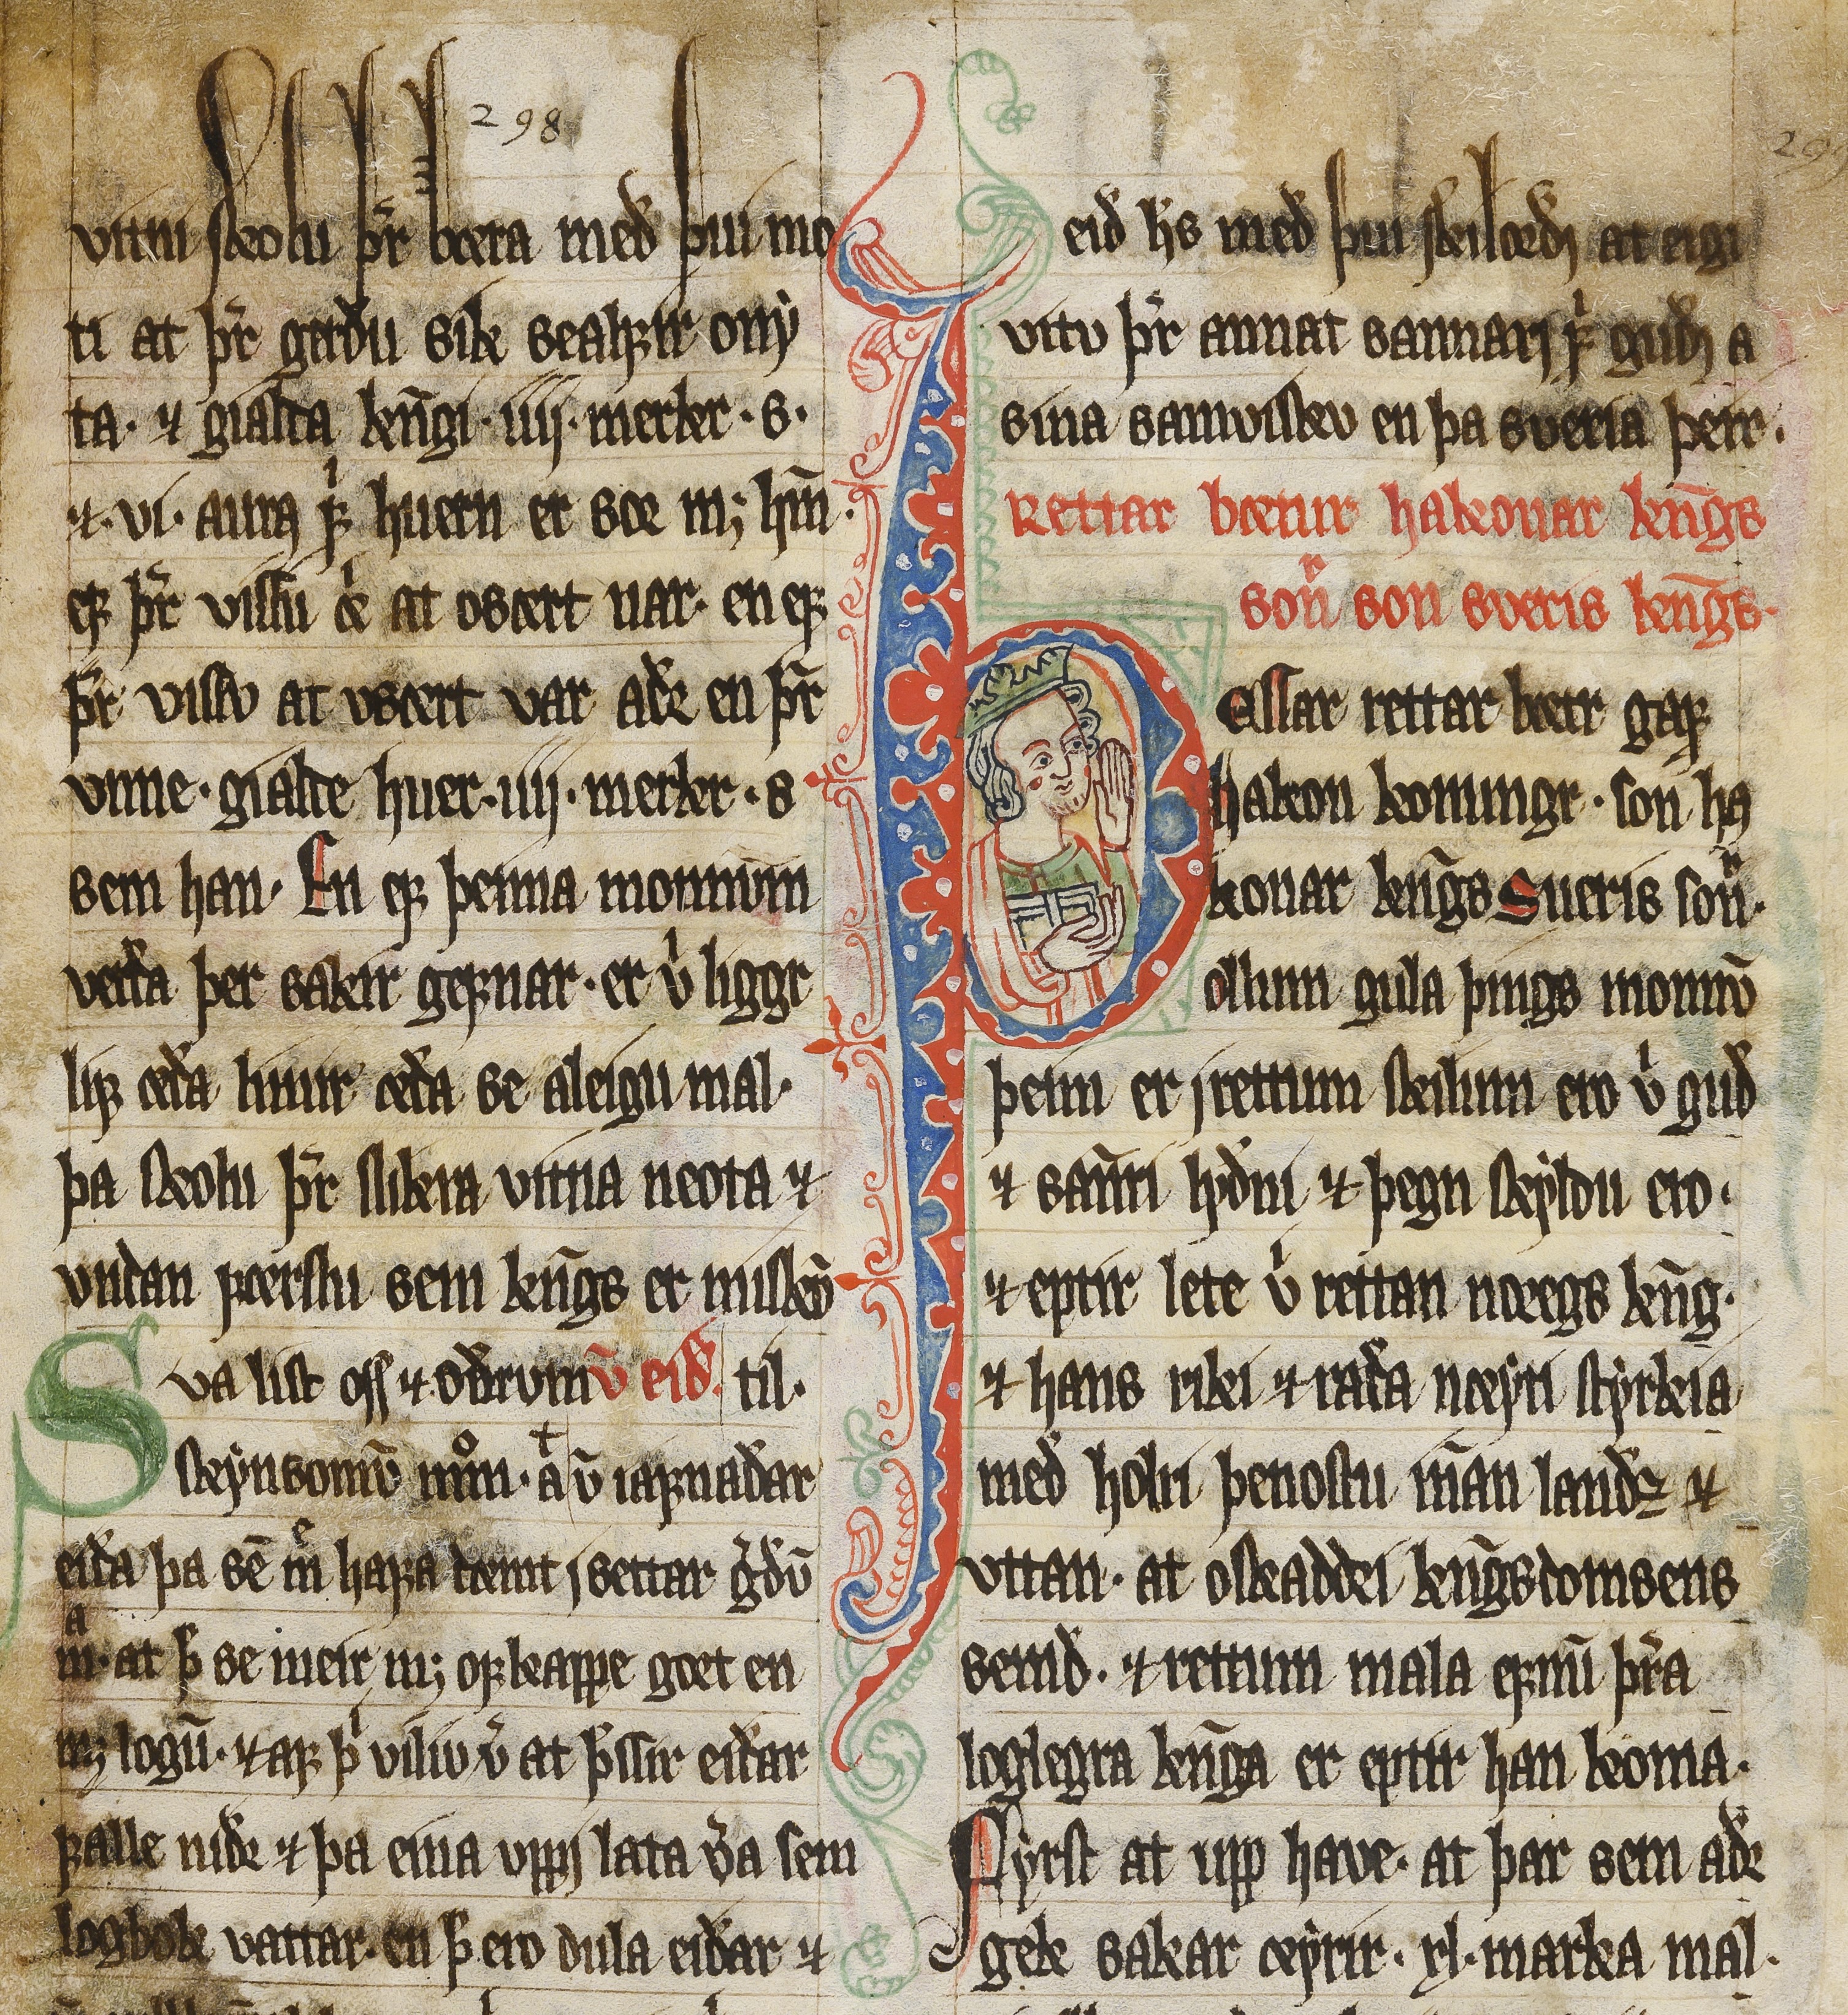 298
vitni skolu þr̄ bæra með þui mo
ti at þr̄ gerðu sik sealꝼir ony
ta. ⁊ gialda kn̄gi. iiij. merkr. s.
⁊. vi. aura ꝼ huern er sor mꝫ hm̄.
eꝼ þr̄ vissu æi at osœrt uar. en eꝼ
þr̄ vissv at vsœrt var aðꝛ en þr̄
vinne. gialde huer. iiij. merkr. s
sem han. En eꝼ þenna monnvm
verða þer sakir geꝼnar. er v̄ liggr
liꝼ œða limir œða se aleigu mal.
þa skolu þr̄ slikra vitna neota ⁊
vndan ꝼœrslu sem kn̄gs er miskv̄
Sva list oss ⁊ oðrvm v̄ eið. til.
skynsomv̄ mm̊. a v̄ iaꝼnaðar
eiða þa sē m̄ haꝼa dœmt j settar gðv̄
m. at þ̄ se meir mꝫ oꝼkappe gœt en
mꝫ logū. ⁊ aꝼ þͥ viliv v̄ at þ̄ssir eiðar
ꝼalle niðꝛ ⁊ þa eina vppi lata v̄a sem
logbok vattar. en þ̄ ero dula eiðar ⁊
eið h̄s með þui skilorði at eigi
vito þr̄ annat sannarj ꝼ̄ guði a
sina samvisko en þa sveria þeir.
Rettar bœtur hakonar kn̄gs
son̄ son sveris kn̄gs.
Þessar rettar bœtr gaꝼ
hakon konungr. son ha
konar kn̄gs Sueris son̄.
ollum gula þings monnv̄
þeim er j rettum skilum ero v̄ guð
⁊ san̄ri lyðni ⁊ þegn skyldu ero.
⁊ eptir lete v̄ rettan noregs kn̄g.
⁊ hans riki ⁊ raða nœyti styrkia
með holri þenostu in̄an landꝫ ⁊
vttan. at oskaddri kn̄gsdomsens
semð. ⁊ rettum mala eꝼnū þr̄a
loglegra kn̄ga er eptir han koma.
Fyrst at upp have. at þar sem aðꝛ
gek sakar œyrir. xl. marka mal.